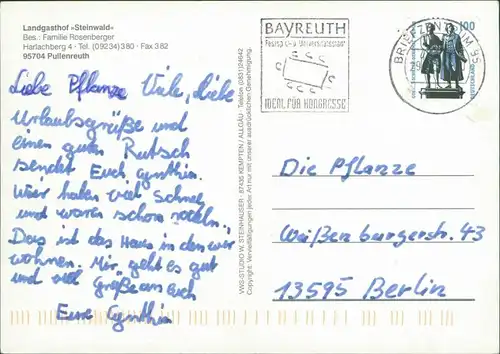 Landgasthof »Steinwald«
Bes.: Familie Rosenberger
Harlachberg 4 · Tel. (09234) 380 · Fax 382
95704 Pullenreuth
Liebe Pflanze Viele, Liebe
Urlaubsgrüße und
einen guten Rutsch
sendet Euch Cynthia.
Wir haben viel Schnee
und waren schon rodeln.
Das ist das Haus in den wir
wohnen. Mir geht es gut
und viel Grüße an Euch
Eure Cynthia
VWS-STUDIO W. STEINHAUSER · 87435 KEMPTEN / ALLGÄU · Telefon
Copyright: Vervielfältigungen jeder Art nur mit unserer ausdrücklichen Genehmigung.
BAYREUTH
Festspiel- u. Universitätsstadt
IDEAL FÜR KONGRESSE
BRIEFZENTRUM 95
100
DEUTSCHLAND
Die Pflanze
Weißenburgerstr. 43
13595 Berlin